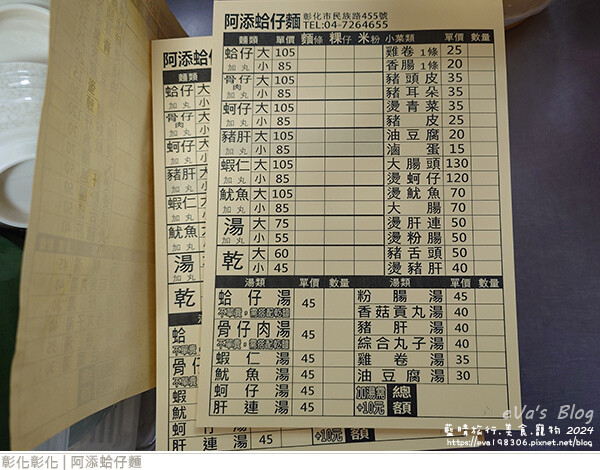 阿添蛤仔麵 彰化市民族路455號
TEL:04-7264655
麵類 單價 麵條 粿仔 米粉 小菜類 單價 數量
蛤仔 加丸 大 105 雞卷1條 25
小 85 香腸1條 20
骨仔肉 加丸 大 105 豬頭皮 35
小 85 豬耳朵 35
蚵仔 加丸 大 105 燙青菜 35
小 85 豬皮 25
豬肝 加丸 大 105 油豆腐 20
小 85 滷蛋 15
蝦仁 加丸 大 105 大腸頭 130
小 85 燙蚵仔 120
魷魚 加丸 大 105 燙魷魚 70
小 85 大腸 70
湯 加丸 大 75 燙肝連 50
小 55 燙粉腸 50
乾 大 60 豬舌頭 50
小 45 燙豬肝 40
湯類 單價 數量 湯類 單價 數量
蛤仔湯 45 粉腸湯 45
不單賣,需搭配乾麵 香菇貢丸湯 40
骨仔肉湯 45 豬肝湯 40
不單賣,需搭配乾麵 綜合丸子湯 40
蝦仁湯 45 雞卷湯 35
魷魚湯 45 油豆腐湯 30
蚵仔湯 45 加湯葉 總額
肝連湯 45 +10元
阿添蛤仔
麵類
蛤仔 加丸 大 小
骨仔肉 加丸 大 小
蚵仔 加丸 大 小
豬肝 加丸 大 小
蝦仁 加丸 大 小
魷魚 加丸 大 小
湯 加丸 大 小
乾 大 小
蛤
不單賣
骨仔
不單賣
蝦
魷
蚵仔
肝連湯 45 +10元 額
eVa's Blog
藍晴旅行.美食.寵物 2024
https://eva198306.pixnet.net/blog
彰化彰化 | 阿添蛤仔麵